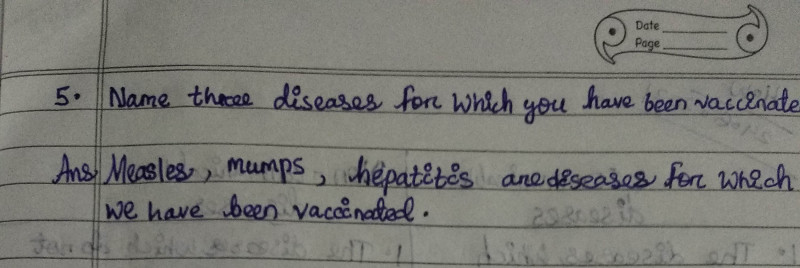 Date
Page
5. Name three diseases for which you have been vaccinate
Ans Measles, mumps, hepatitis are diseases for which
we have been vaccinated.